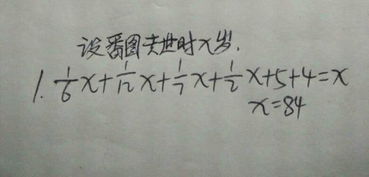 设番图去世时x岁.
1. 1/6x+1/12x+1/7x+1/2x+5+4=x
x=84